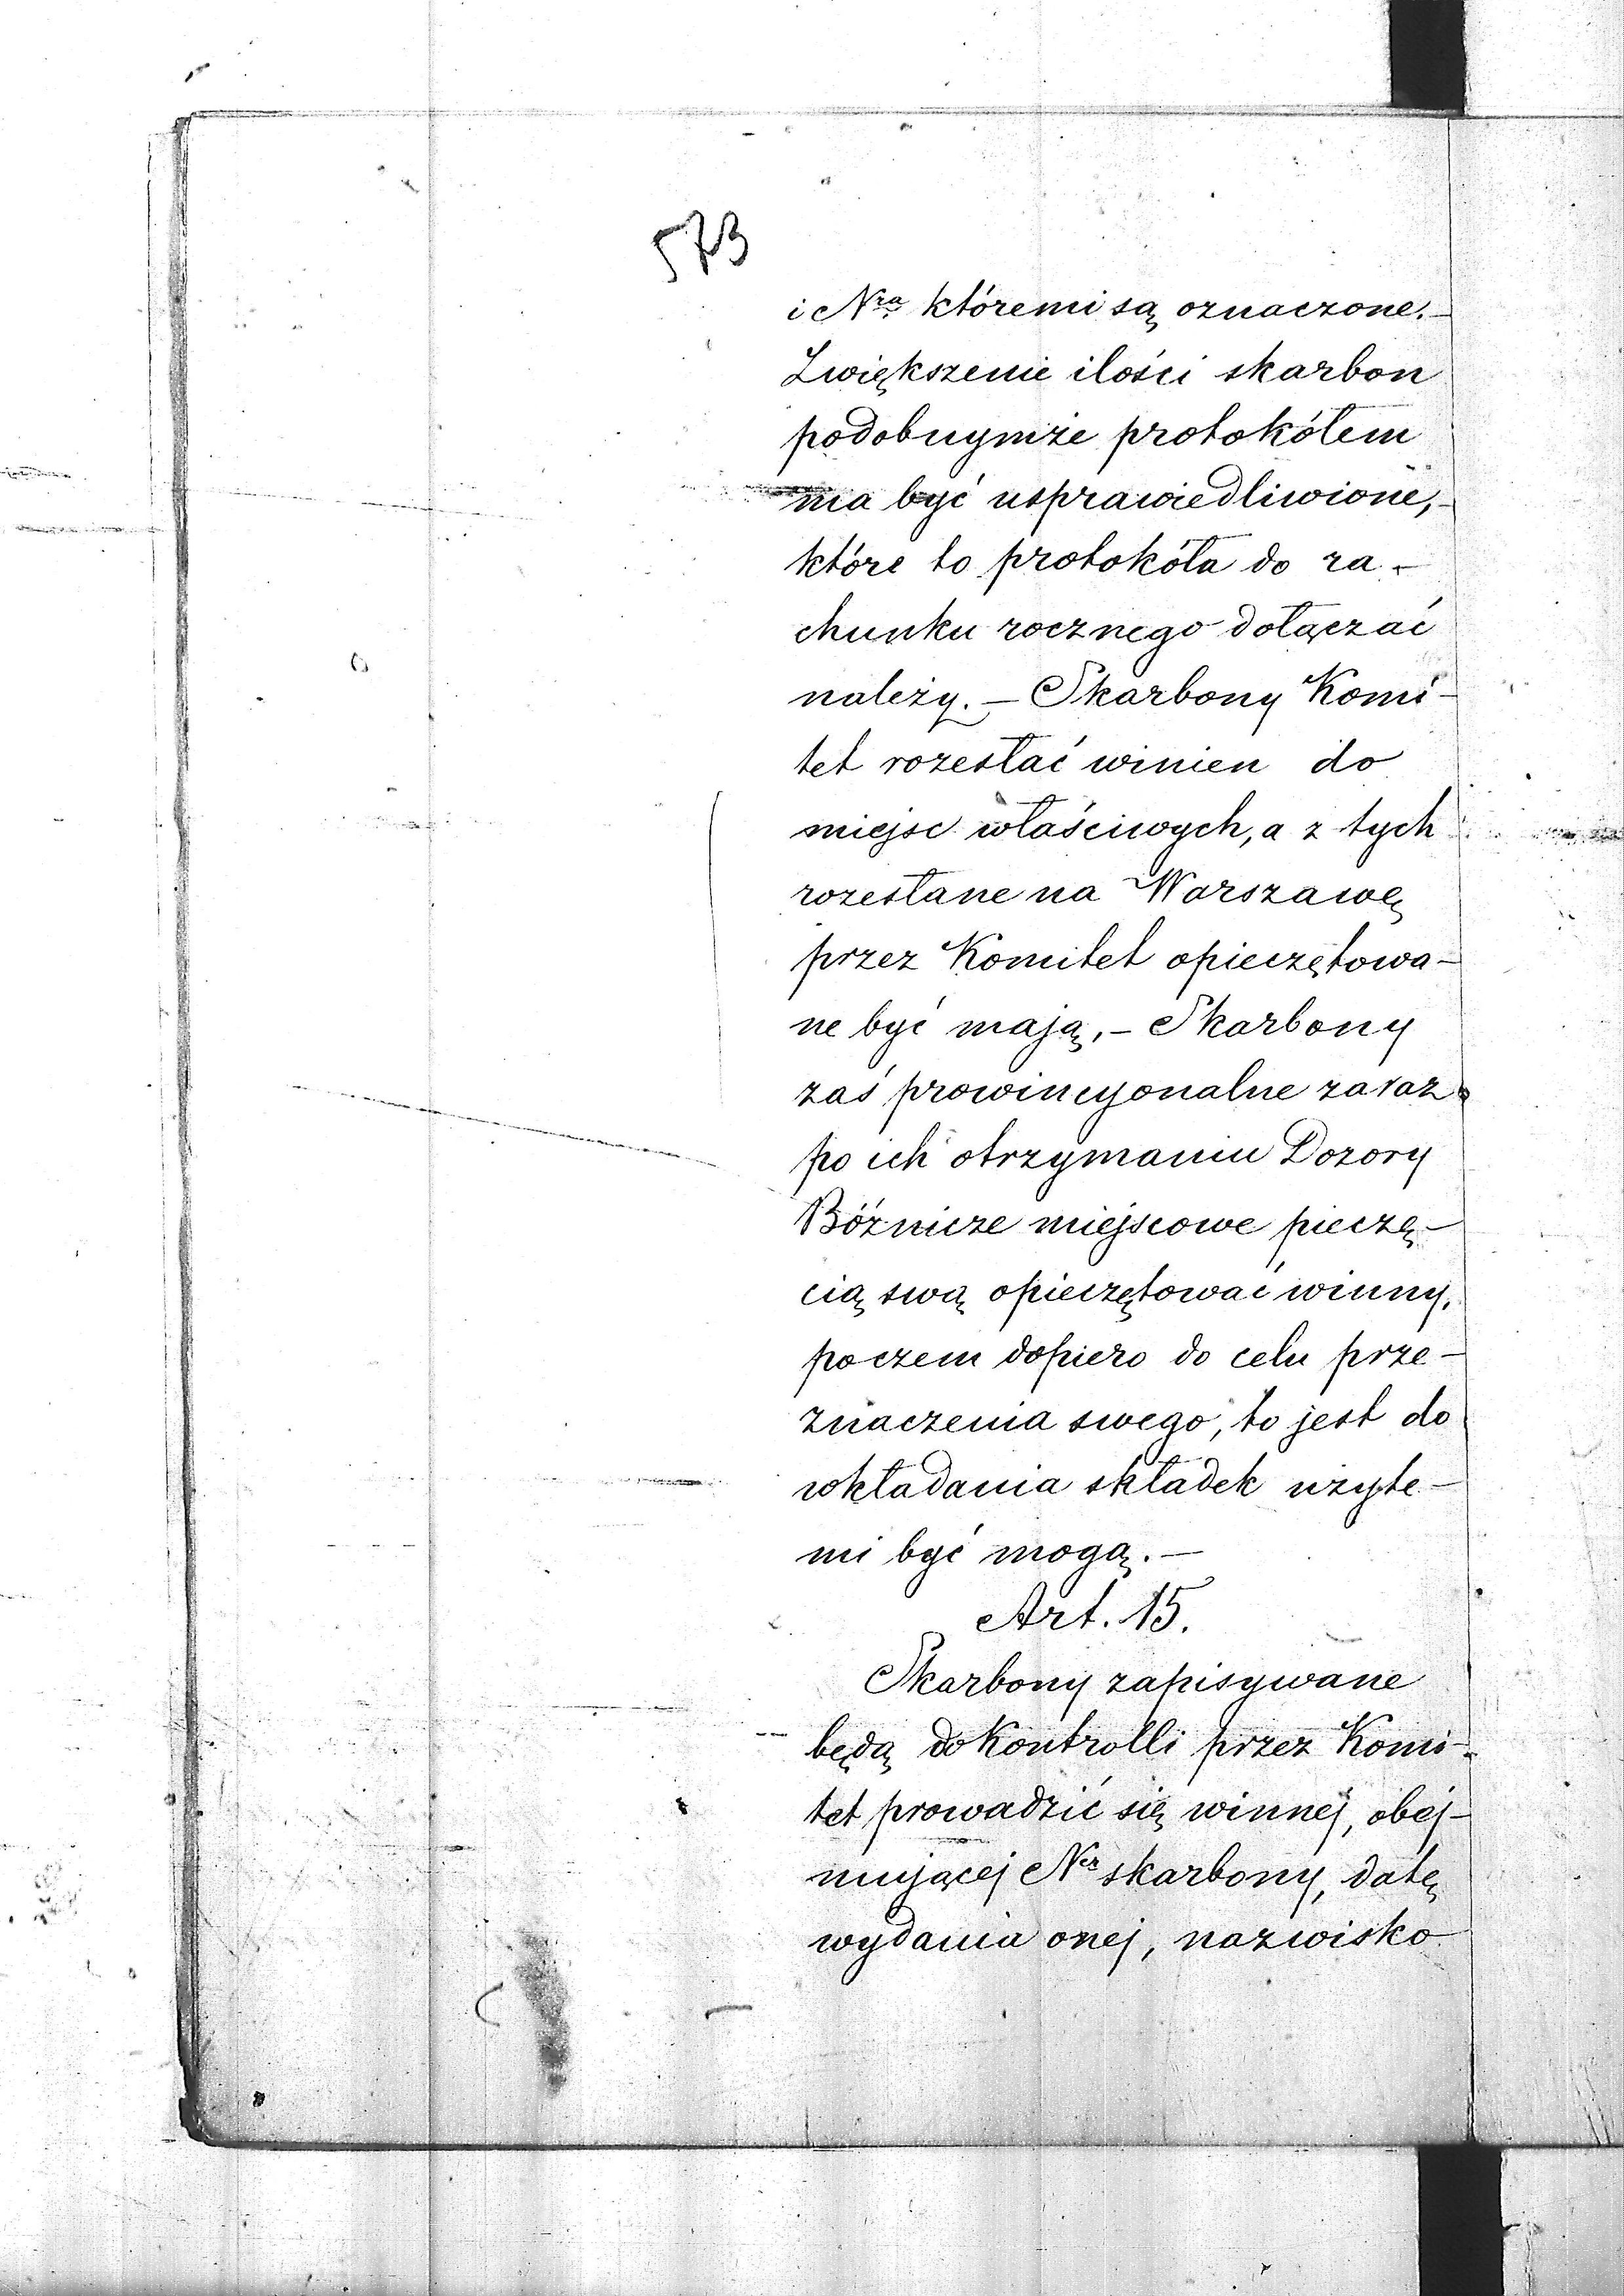 573
i Nra któremi są oznaczone.—
Zwiększenie ilości skarbon
podobnymże protokółem
ma być usprawiedliwione,—
które to protokóła do ra-
chunku rocznego dołączać
należy.— Skarbony Komi-
tet rozesłać winien do
miejsc właściwych, a z tych
rozesłane na Warszawę
przez Komitet opieczętowa-
ne być mają,— Skarbony
zaś prowincyonalne zaraz
po ich otrzymaniu Dozory
Bóźnicze miejscowe pieczę-
cią swą opieczętować winny,
poczem dopiero do celu prze-
znaczenia swego, to jest do
wkładania składek użyte-
mi być mogą.—
Art. 15.
Skarbony zapisywane
będą do Kontrolli przez Komi-
tet prowadzić się winnej, obej-
mującej Ner skarbony, datę
wydania onej, nazwisko